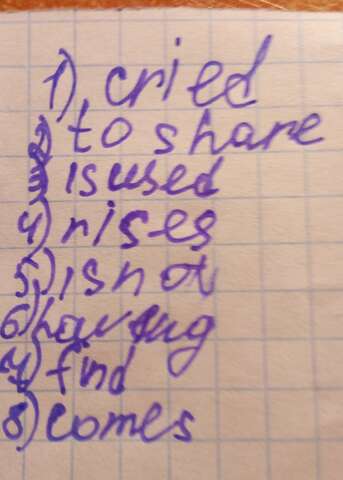 1) cried
2) to share
3) is used
4) rises
5) is not
6) having
7) find
8) comes